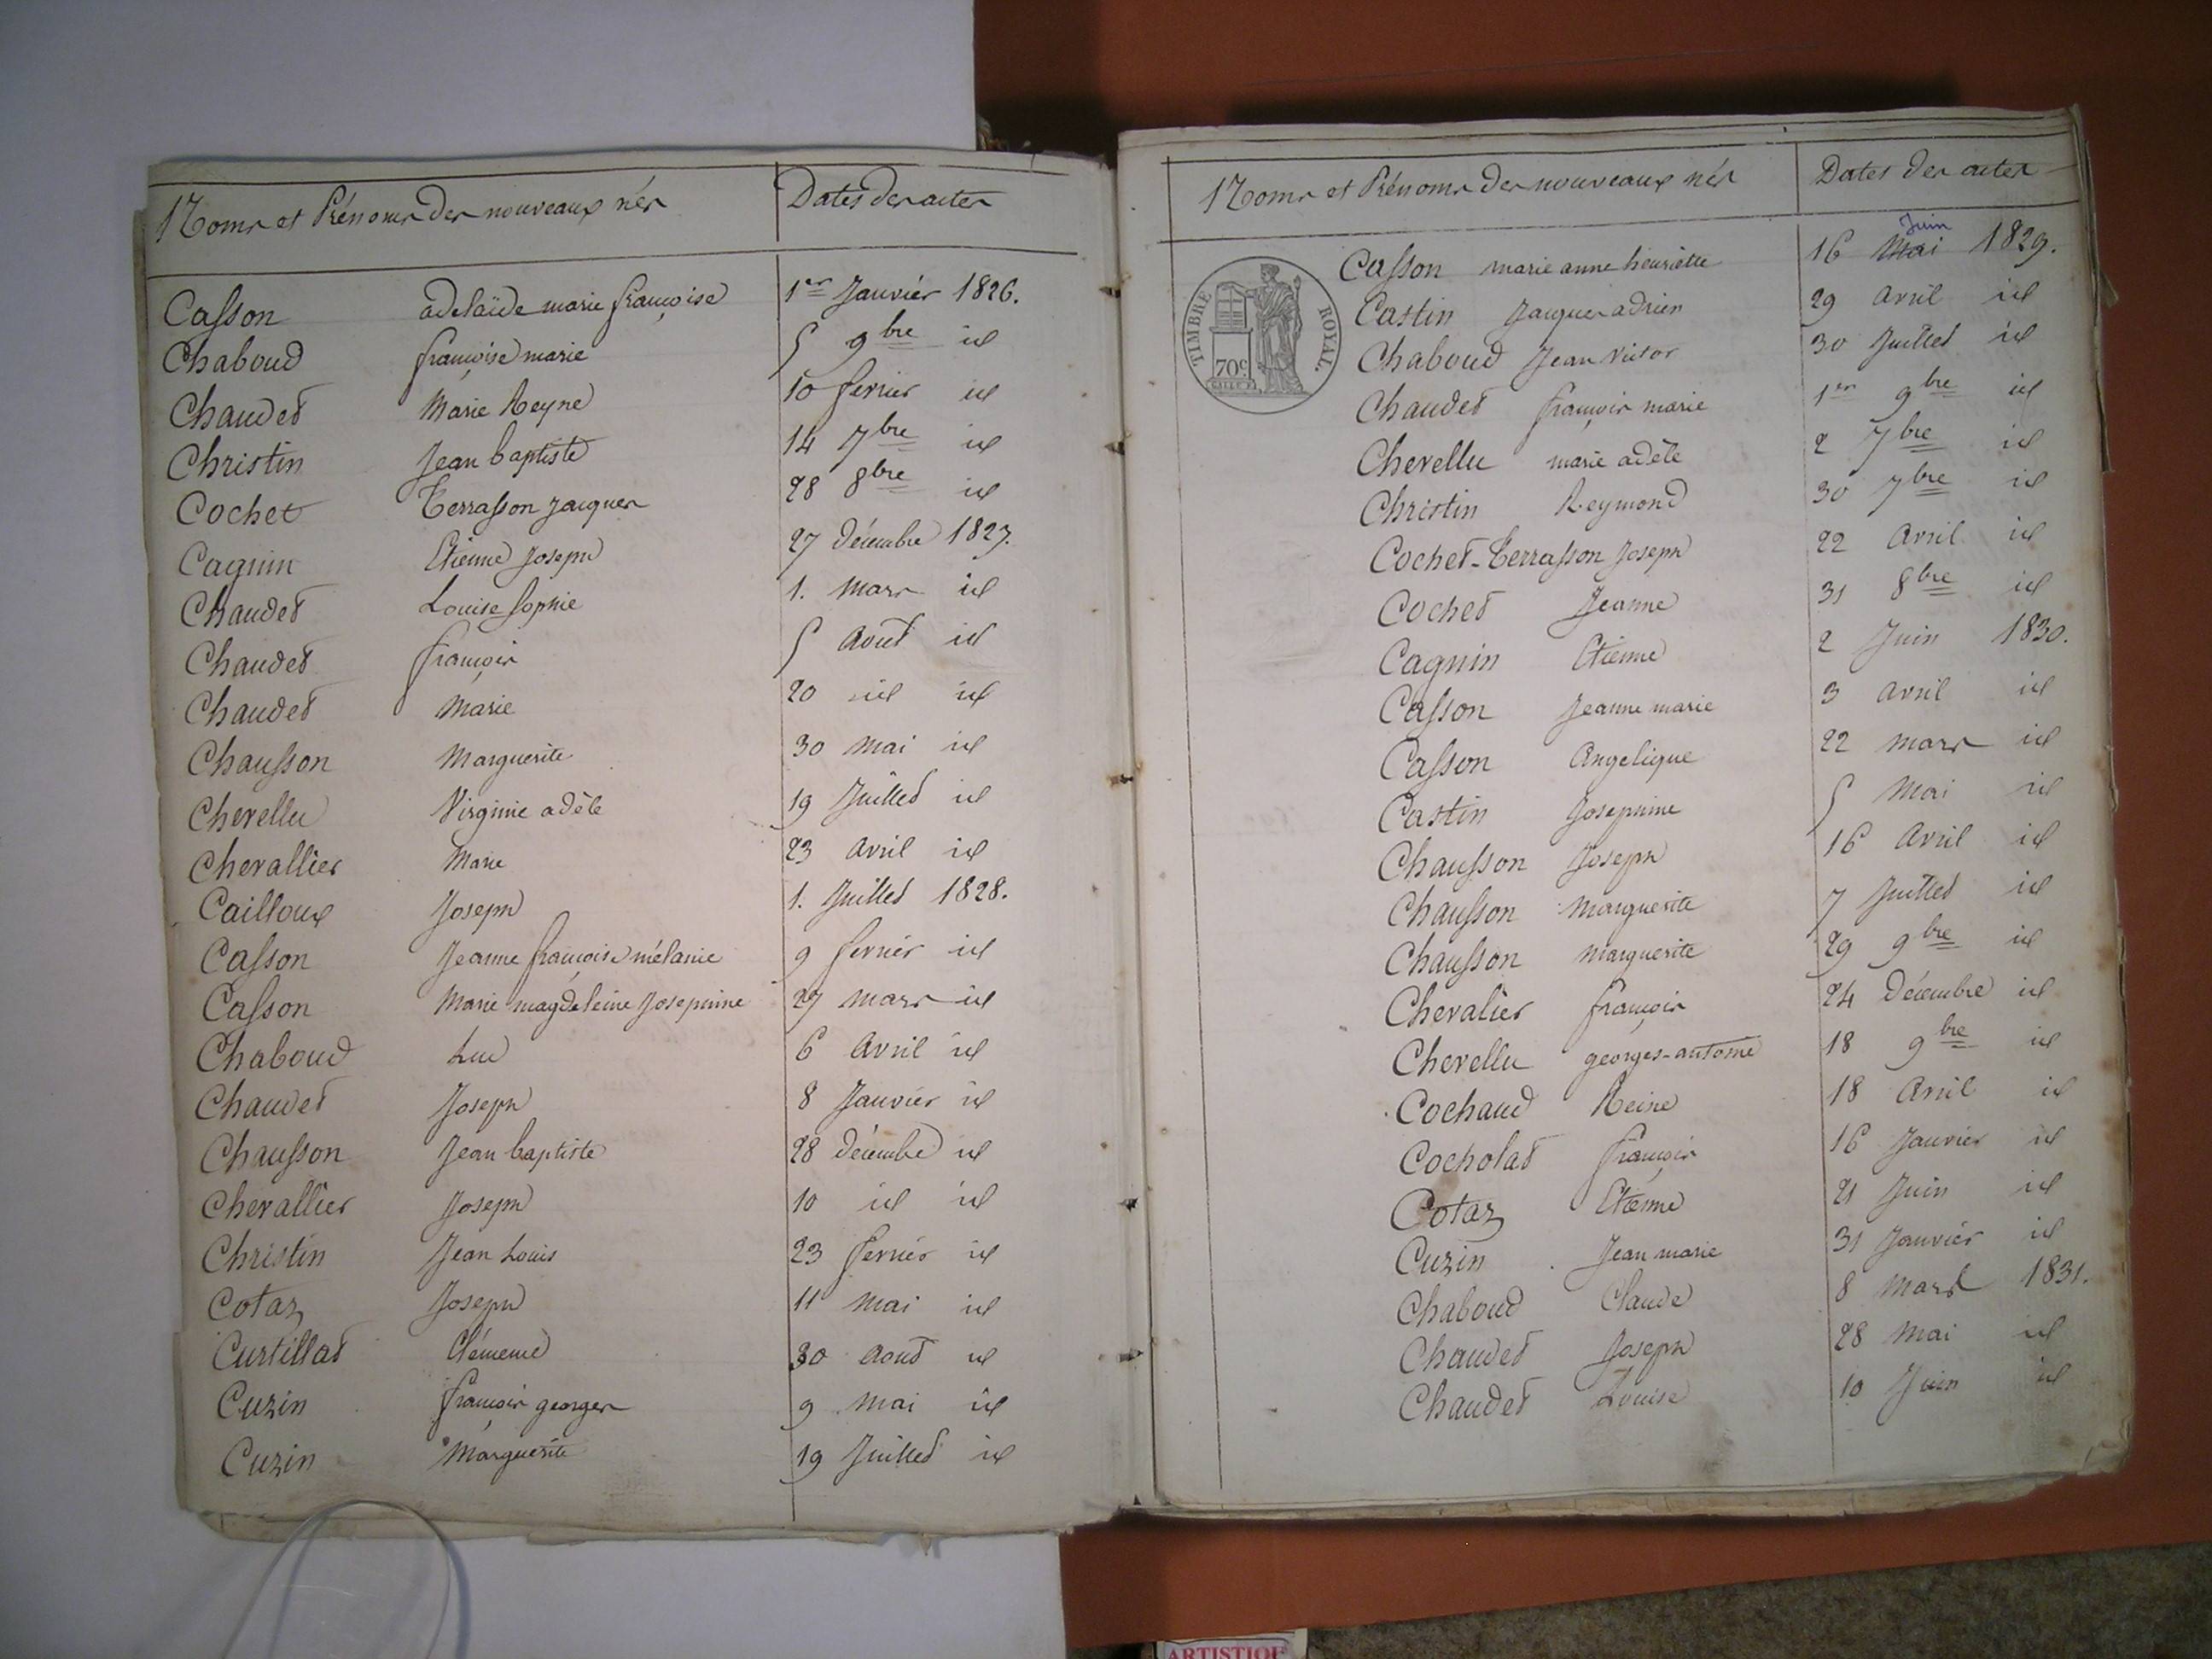 Noms et Prénoms des nouveaux nés Dates des actes
Casson adelaïde marie françoise 1er Janvier 1826.
Chaboud françoise marie 5 9bre id
Chaudet Marie Reyne 10 fevrier id
Christin Jean baptiste 14 7bre id
Cochet Terrasson Jacques 28 8bre id
Cagnin Etienne Joseph 27 décembre 1827.
Chaudet Louise Sophie 1. Mars id
Chaudet françois 5 Aout id
Chaudet Marie 20 id id
Chausson Marguerite 30 Mai id
Chevellu Virginie adèle 19 Juillet id
Chevallier Marie 23 Avril id
Cailloux Joseph 1. Juillet 1828.
Casson Jeanne françoise mélanie 9 fevrier id
Casson Marie magdeleine Josephine 27 Mars id
Chaboud Luc 6 Avril id
Chaudet Joseph 8 Janvier id
Chausson Jean baptiste 28 décembre id
Chevallier Joseph 10 id id
Christin Jean Louis 23 fevrier id
Cotaz Joseph 11 Mai id
Curtillat Clémence 30 Aout id
Cuzin françois georges 9 Mai id
Cuzin Marguerite 19 Juillet id
Noms et Prénoms des nouveaux nés Dates des actes
TIMBRE ROYAL.
70c
Juin
Casson marie anne henriette 16 Mai 1829.
Castin Jacques adrien 29 Avril id
Chaboud Jean Victor 30 Juillet id
Chaudet françois marie 1er 9bre id
Chevellu marie adèle 2 7bre id
Christin Reymond 30 7bre id
Cochet-Terrasson Joseph 22 Avril id
Cochet Jeanne 31 8bre id
Cagnin Etienne 2 Juin 1830.
Casson Jeanne marie 3 Avril id
Casson Angelique 22 mars id
Castin Josephine 5 Mai id
Chausson Joseph 16 Avril id
Chausson Marguerite 7 Juillet id
Chausson Marguerite 29 9bre id
Chevalier françois 24 Décembre id
Chevellu georges-antoine 18 9bre id
Cochaud Reine 18 Avril id
Cocholat françois 16 Janvier id
Cotaz Etienne 21 Juin id
Cuzin Jean marie 31 Janvier id
Chaboud Claude 8 Mars 1831.
Chaudet Joseph 28 Mai id
Chaudet Louise 10 Juin id
ARTISTIQUE